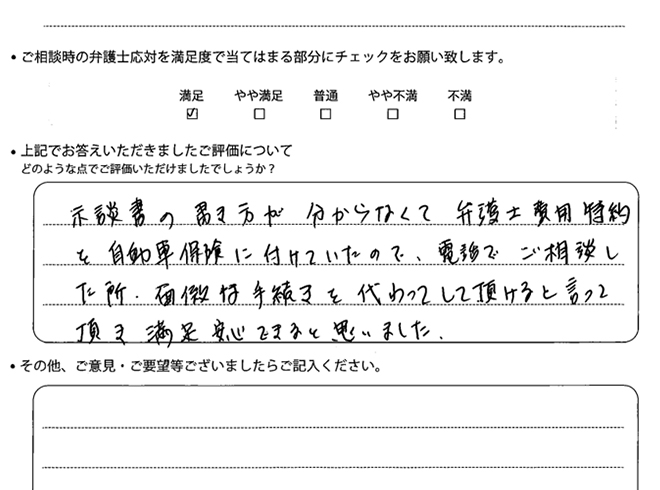 • ご相談時の弁護士応対を満足度で当てはまる部分にチェックをお願い致します。
満足 やや満足 普通 やや不満 不満
☑ □ □ □ □
• 上記でお答えいただきましたご評価について
どのような点でご評価いただけましたでしょうか？
示談書の書き方が分からなくて弁護士費用特約
を自動車保険に付けていたので、電話でご相談し
た所、面倒な手続きを代わってして頂けると言って
頂き満足安心できると思いました。
• その他、ご意見・ご要望等ございましたらご記入ください。